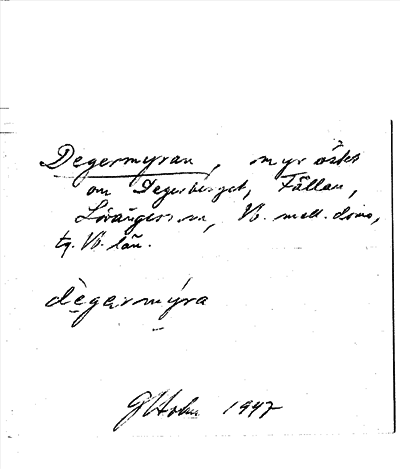 Degermyran, myr öster
om Degerberget, Fällan,
Lövångers sn, Vb. mell. doms,
tg. Vb. län.
dègermýra
GHolm 1947